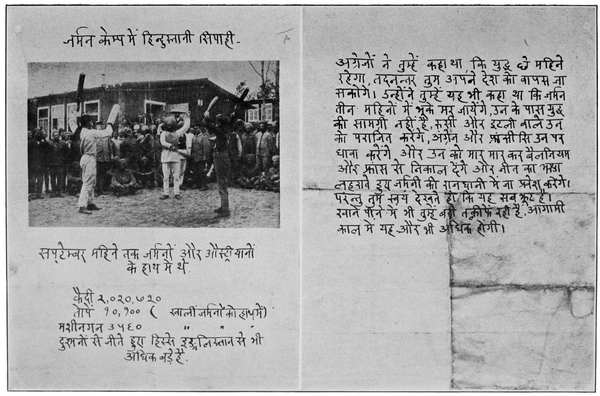 जर्मन केम्प में हिन्दुस्तानी सिपाही.
सप्टेम्बर महिने तक जर्मनों और औस्ट्रीयानों
के हाथ में थे
कैदी २,०२०,७२०
तोपें १०,१०० ( खाली जर्मनों को हाथ में)
मशीनगन ३५६० " " "
दुश्मनों से जीते हुए हिस्से इङ्गलिस्तान से भी
अधिक बड़े है.
अंग्रेजों ने तुम्हें कहा था, कि युद्ध छे महिने
रहेगा, तदनन्तर तुम अपने देश को वापस जा
सकोगे। उन्होंने तुम्हें यह भी कहा था कि जर्मन
तीन महिनों में भूके मर जायेंगे, उन के पास युद्ध
की सामग्री नहीं है, रूसी और इटली वाले उन
को पराजित करेंगे, अंग्रेज और फ्रान्सीसि उन पर
धावा करेंगे, और उन को मार मार कर बेलजियम
और फ्रांस से निकाल देंगे और जीत का झण्डा
लहराते हुए जर्मनी की राजधानी में जा प्रवेश करेंगे।
परन्तु तुम स्वयं देखते हो कि यह सब झूट है।
खाने पीने में भी तुम्हें बड़ी तक़लीफ़ें रही है, आगामी
काल में यह और भी अधिक होगी।